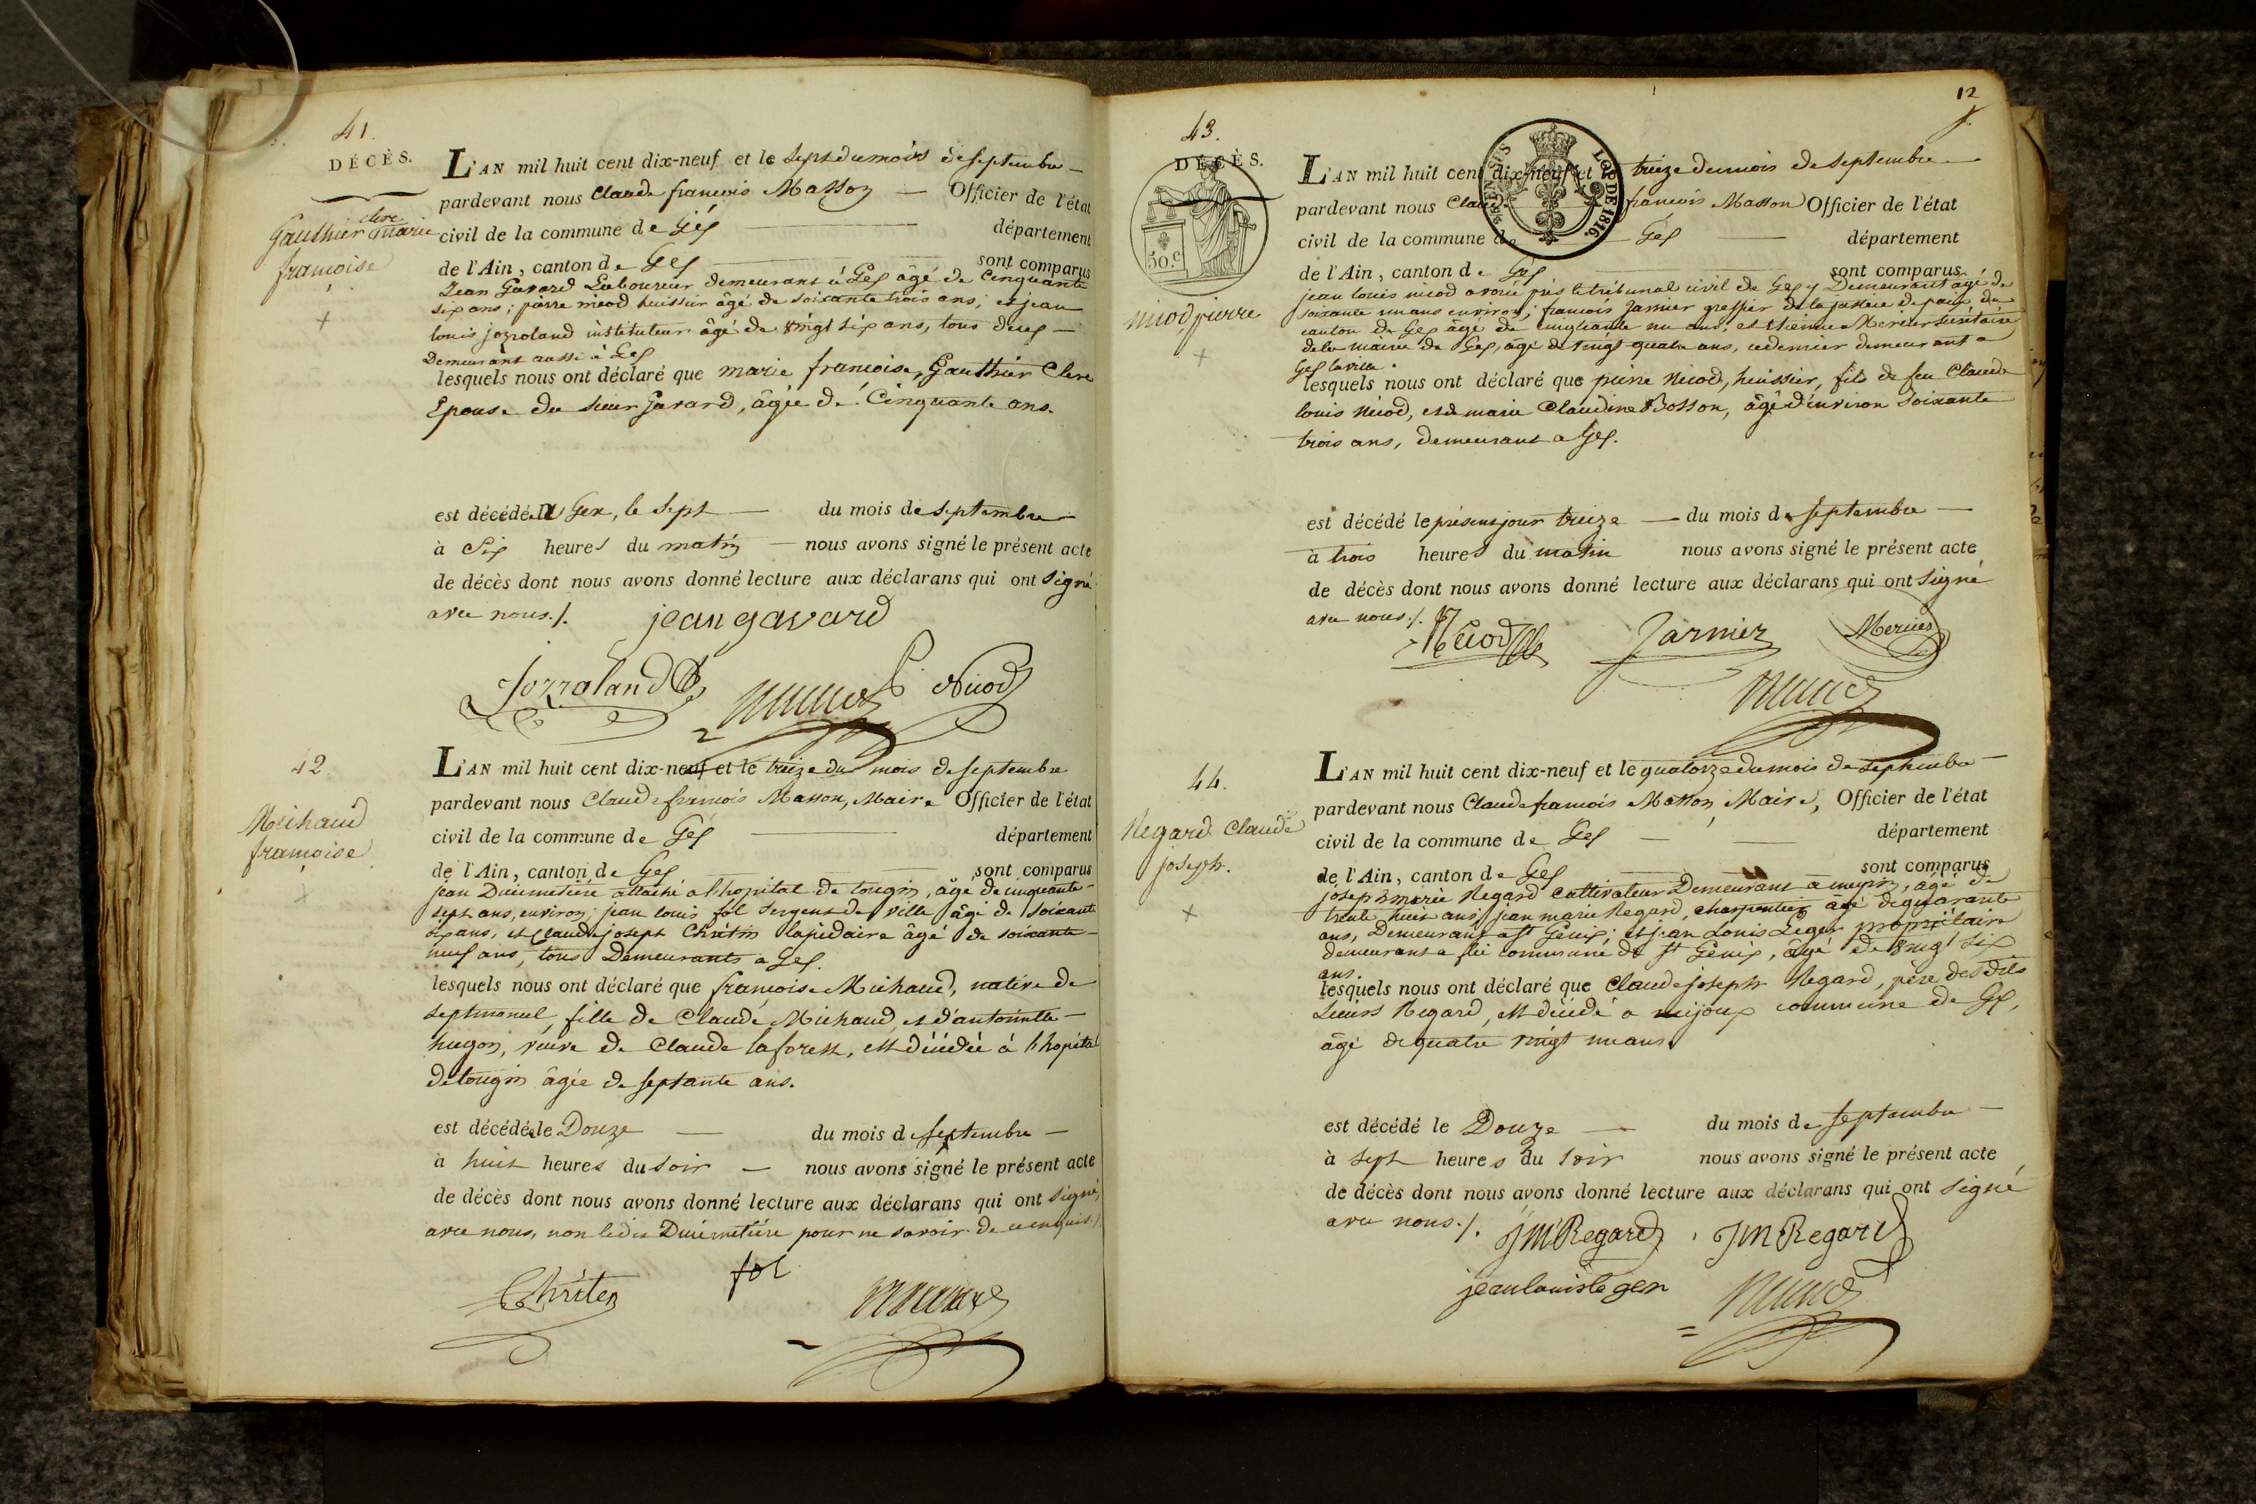 41.
DÉCÈS.
Gauthier Clerc Marie
françoise
L'AN mil huit cent dix-neuf et le Sept du mois de septembre
pardevant nous Claude françois Masson Officier de l'état
civil de la commune de Gex département
de l'Ain, canton de Gex sont comparus
Jean Gavard Laboureur demeurant à Gex âgé de Cinquante
six ans; pierre nicod huissier âgé de soixante trois ans; et jean
louis jozroland instituteur âgé de vingt six ans, tous deux
Demeurant aussi à Gex
lesquels nous ont déclaré que marie françoise, Gauthier Clerc
Epouse du sieur Gavard, âgée de Cinquante ans.
est décédée à Gex, le sept du mois de septembre
à Six heures du matin nous avons signé le présent acte
de décès dont nous avons donné lecture aux déclarans qui ont signé
avec nous./.
jean gavard
Jozroland
P. Nicod
42
Michaud
françoise
L'AN mil huit cent dix-neuf et le treize du mois de septembre
pardevant nous Claude françois Masson, Maire Officier de l'état
civil de la commune de Gex département
de l'Ain, canton de Gex sont comparus
jean Ducimetière attaché a l'hopital de tougin, âgé de cinquante
sept ans, environ, jean louis fol sergent de ville âgé de soixante
six ans, et Claude joseph Chréten lapidaire âgé de soixante
neuf ans, tous Demeurants a Gex.
lesquels nous ont déclaré que françoise Michaud, native de
septmoncel, fille de Claude Michaud, et d'antoinette
hugon, veuve de Claude laforest, est décédée à l'hopital
de tougin âgée de septante ans.
est décédée le Douze du mois de septembre
à huit heures du soir nous avons signé le présent acte
de décès dont nous avons donné lecture aux déclarans qui ont signé,
avec nous, non ledit Ducimetière pour ne savoir de ce enquis./.
Chréten
fol
12
43.
DÉCÈS.
50.c
LOI DE 1816.
nicod pierre
L'AN mil huit cent dix-neuf et le treize du mois de septembre
pardevant nous Claude françois Masson Officier de l'état
civil de la commune de Gex département
de l'Ain, canton de Gex sont comparus
jean louis nicod avoué près le tribunal civil de Gex y Demeurant âgé de
soixante un ans environ; françois Jarnier greffier de la justice de paix du
canton de Gex âgé de cinquante un ans, et etienne Mercier secrétaire
de la mairie de Gex, âgé de vingt quatre ans, ce dernier demeurant a
Gex la ville.
lesquels nous ont déclaré que pierre Nicod, huissier, fils de feu Claude
louis Nicod, et de marie Claudine Bosson, âgé d'environ soixante
trois ans, demeurant a Gex.
est décédé le présent jour treize du mois de septembre
à trois heures du matin nous avons signé le présent acte
de décès dont nous avons donné lecture aux déclarans qui ont signé
avec nous./.
Nicod
Jarnier
Mercier
44.
Regard Claude
joseph.
L'AN mil huit cent dix-neuf et le quatorze du mois de septembre
pardevant nous Claude françois Masson Maire, Officier de l'état
civil de la commune de Gex département
de l'Ain, canton de Gex sont comparus
joseph marie Regard Cultivateur Demeurant a meyrin, âgé de
trente huit ans; jean marie Regard, charpentier âgé de quarante
ans, Demeurant a St Genix; et jean Louis Leger propriétaire
demeurant a commune de St Genix, âgé de vingt six
ans.
lesquels nous ont déclaré que Claude joseph Regard, père des dits
sieurs Regard, est décédé a mijoux commune de Gex,
âgé de quatre vingt un ans.
est décédé le Douze du mois de septembre
à sept heures du soir nous avons signé le présent acte
de décès dont nous avons donné lecture aux déclarans qui ont signé
avec nous./.
JM Regard
JM Regard
jean louis leger